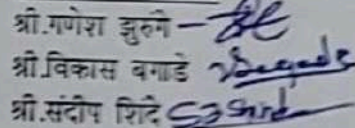 श्री.गणेश झुरुगे –
श्री.विकास बगाडे VBagade
श्री.संदीप शिंदे S S Shinde